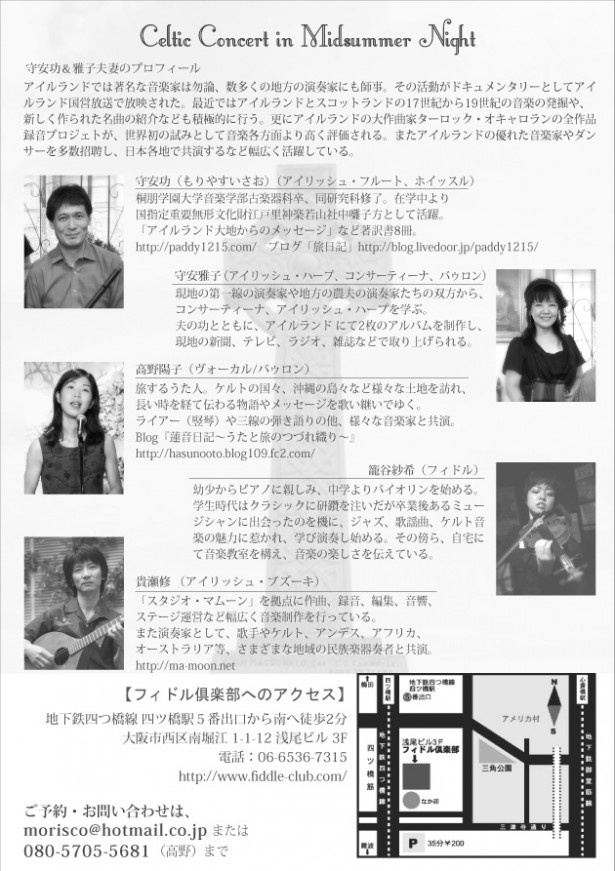 Celtic Concert in Midsummer Night
守安功&雅子夫妻のプロフィール
アイルランドでは著名な音楽家は勿論、数多くの地方の演奏家にも師事。その活動がドキュメンタリーとしてアイ
ルランド国営放送で放映された。最近ではアイルランドとスコットランドの17世紀から19世紀の音楽の発掘や、
新しく作られた名曲の紹介なども積極的に行う。更にアイルランドの大作曲家ターロック・オキャロランの全作品
録音プロジェクトが、世界初の試みとして音楽各方面より高く評価される。またアイルランドの優れた音楽家やダン
サーを多数招聘し、日本各地で共演するなど幅広く活躍している。
守安功（もりやすいさお）（アイリッシュ・フルート、ホイッスル）
桐朋学園大学音楽学部古楽器科卒、同研究科修了。在学中より
国指定重要無形文化財江戸里神楽若山社中囃子方として活躍。
「アイルランド大地からのメッセージ」など著訳書8冊。
http://paddy1215.com/ ブログ「旅日記」http://blog.livedoor.jp/paddy1215/
守安雅子（アイリッシュ・ハープ、コンサーティーナ、バゥロン）
現地の第一線の演奏家や地方の農夫の演奏家たちの双方から、
コンサーティーナ、アイリッシュ・ハープを学ぶ。
夫の功とともに、アイルランド にて2枚のアルバムを制作し、
現地の新聞、テレビ、ラジオ、雑誌などで取り上げられる。
高野陽子（ヴォーカル/バゥロン）
旅するうた人。ケルトの国々、沖縄の島々など様々な土地を訪れ、
長い時を経て伝わる物語やメッセージを歌い継いでゆく。
ライアー（竪琴）や三線の弾き語りの他、様々な音楽家と共演。
Blog『蓮音日記〜うたと旅のつづれ織り〜』
http://hasunooto.blog109.fc2.com/
籠谷紗希（フィドル）
幼少からピアノに親しみ、中学よりバイオリンを始める。
学生時代はクラシックに研鑽を注いだが卒業後あるミュー
ジシャンに出会ったのを機に、ジャズ、歌謡曲、ケルト音
楽の魅力に惹かれ、学び演奏し始める。その傍ら、自宅に
て音楽教室を構え、音楽の楽しさを伝えている。
貴瀬修（アイリッシュ・ブズーキ）
「スタジオ・マムーン」を拠点に作曲、録音、編集、音響、
ステージ運営など幅広く音楽制作を行っている。
また演奏家として、歌手やケルト、アンデス、アフリカ、
オーストラリア等、さまざまな地域の民族楽器奏者と共演。
http://ma-moon.net
【フィドル倶楽部へのアクセス】
地下鉄四つ橋線 四ツ橋駅５番出口から南へ徒歩2分
大阪市西区南堀江 1-1-12 浅尾ビル 3F
電話：06-6536-7315
http://www.fiddle-club.com/
ご予約・お問い合わせは、
morisco@hotmail.co.jp または
080-5705-5681（高野）まで
梅田
四ツ橋駅
地下鉄四つ橋線
四ツ橋駅
⑤番出口
心斎橋駅
N
S
アメリカ村
四ツ橋筋
地下鉄四つ橋線
浅尾ビル３F
フィドル倶楽部
なか卯
三角公園
地下鉄御堂筋線
三津寺通り
難波
P 35分￥200